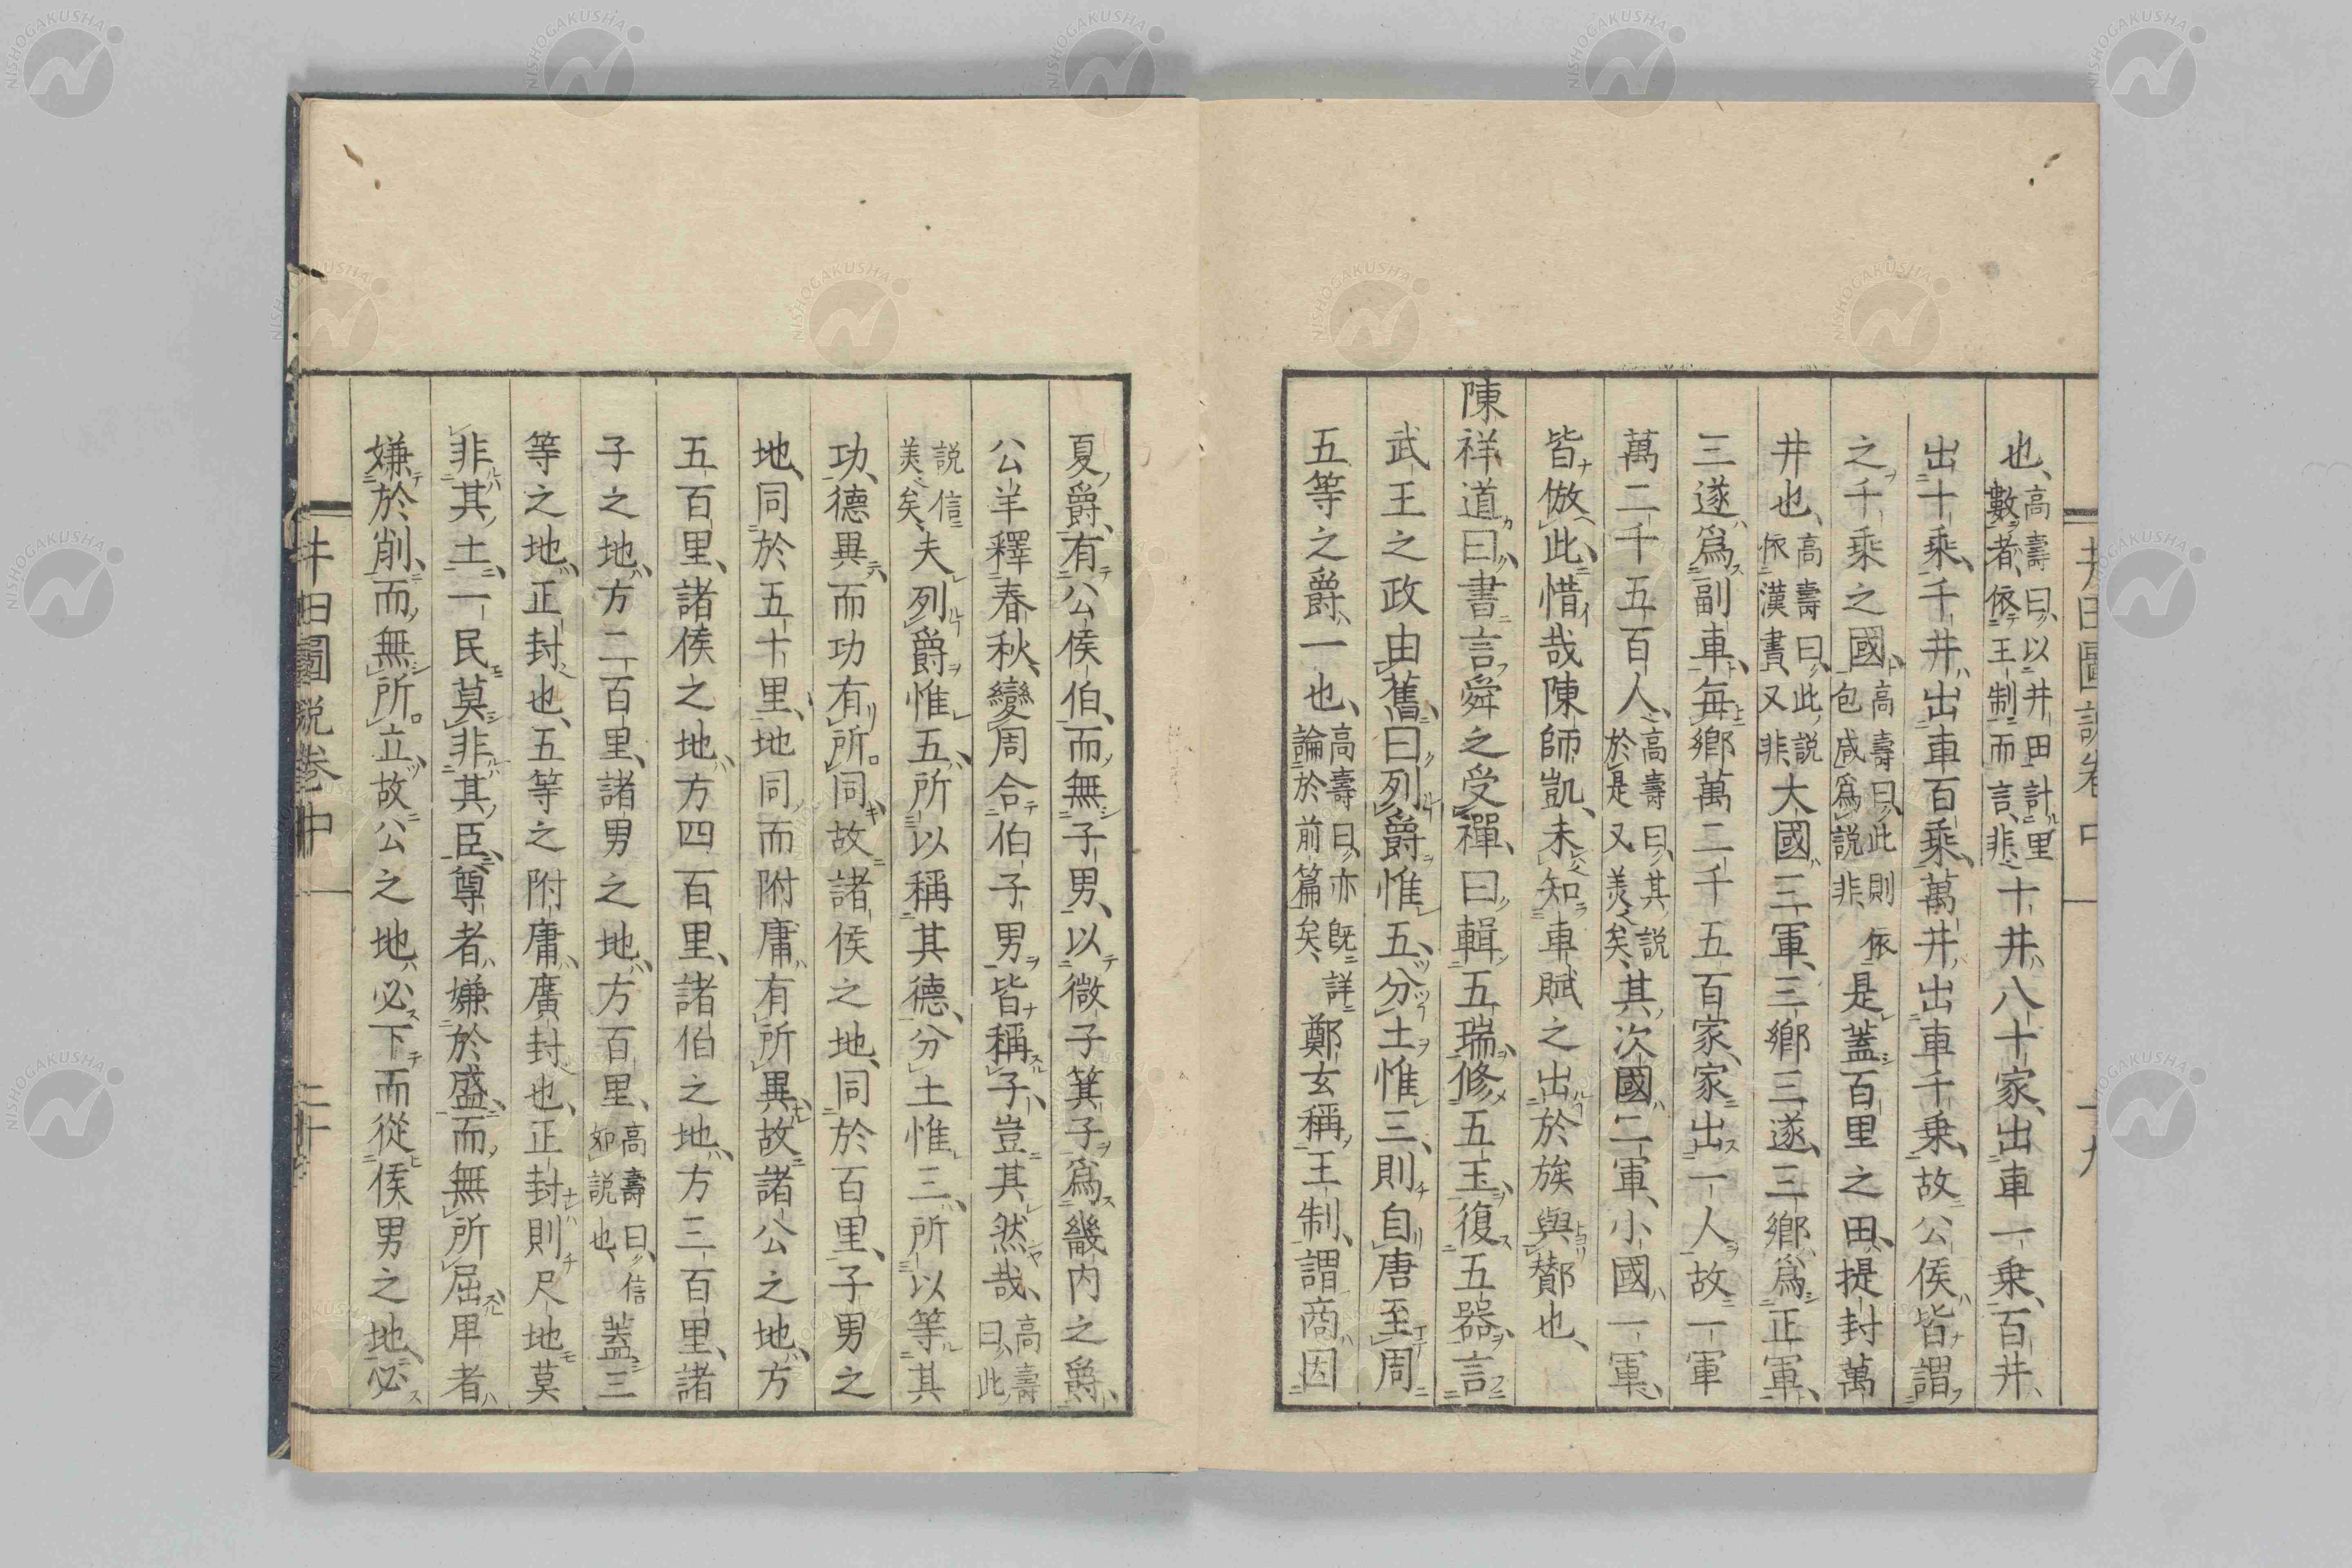 井田圖説卷中 十九
也、高壽曰、以井田計里數者、依王制而言、非十井八十家、出車一乘、百井
出十乘、千井出車百乘、萬井出車千乘、故公侯皆謂
之千乘之國、高壽曰、此則包咸爲説非、依是蓋百里之田、提封萬
井也、高壽曰、此説依漢書又非大國三軍、三鄉三遂、三鄉爲正軍、
三遂爲副車、每鄉萬二千五百家、家出一人、故一軍
萬二千五百人、高壽曰、其説於是又美矣、其次國二軍、小國一軍、
皆倣此、惜哉陳師凱、未知車賦之出於族與鄼也、
陳祥道曰、書言舜之受禪、曰輯五瑞、修五玉、復五器、言
武王之政由舊、曰列爵惟五、分土惟三、則自唐至周
五等之爵一也、高壽曰、亦既詳論於前篇矣、鄭玄稱王制、謂商因
夏爵、有公侯伯、而無子男、以微子箕子爲畿内之爵、
公羊釋春秋、變周合伯子男皆稱子、豈其然哉、高壽曰、此
説信美矣、夫列爵惟五、所以稱其德、分土惟三、所以等其
功、德異而功有所同、故諸侯之地、同於百里、子男之
地、同於五十里、地同而附庸有所異、故諸公之地、方
五百里、諸侯之地、方四百里、諸伯之地、方三百里、諸
子之地、方二百里、諸男之地、方百里、高壽曰、信如説也、蓋三
等之地、正封也、五等之附庸、廣封也、正封則尺地莫
非其土、一民莫非其臣、尊者嫌於盛、而無所屈、卑者
嫌於削、而無所立、故公之地、必下而從侯、男之地、必
井田圖説卷中 二十